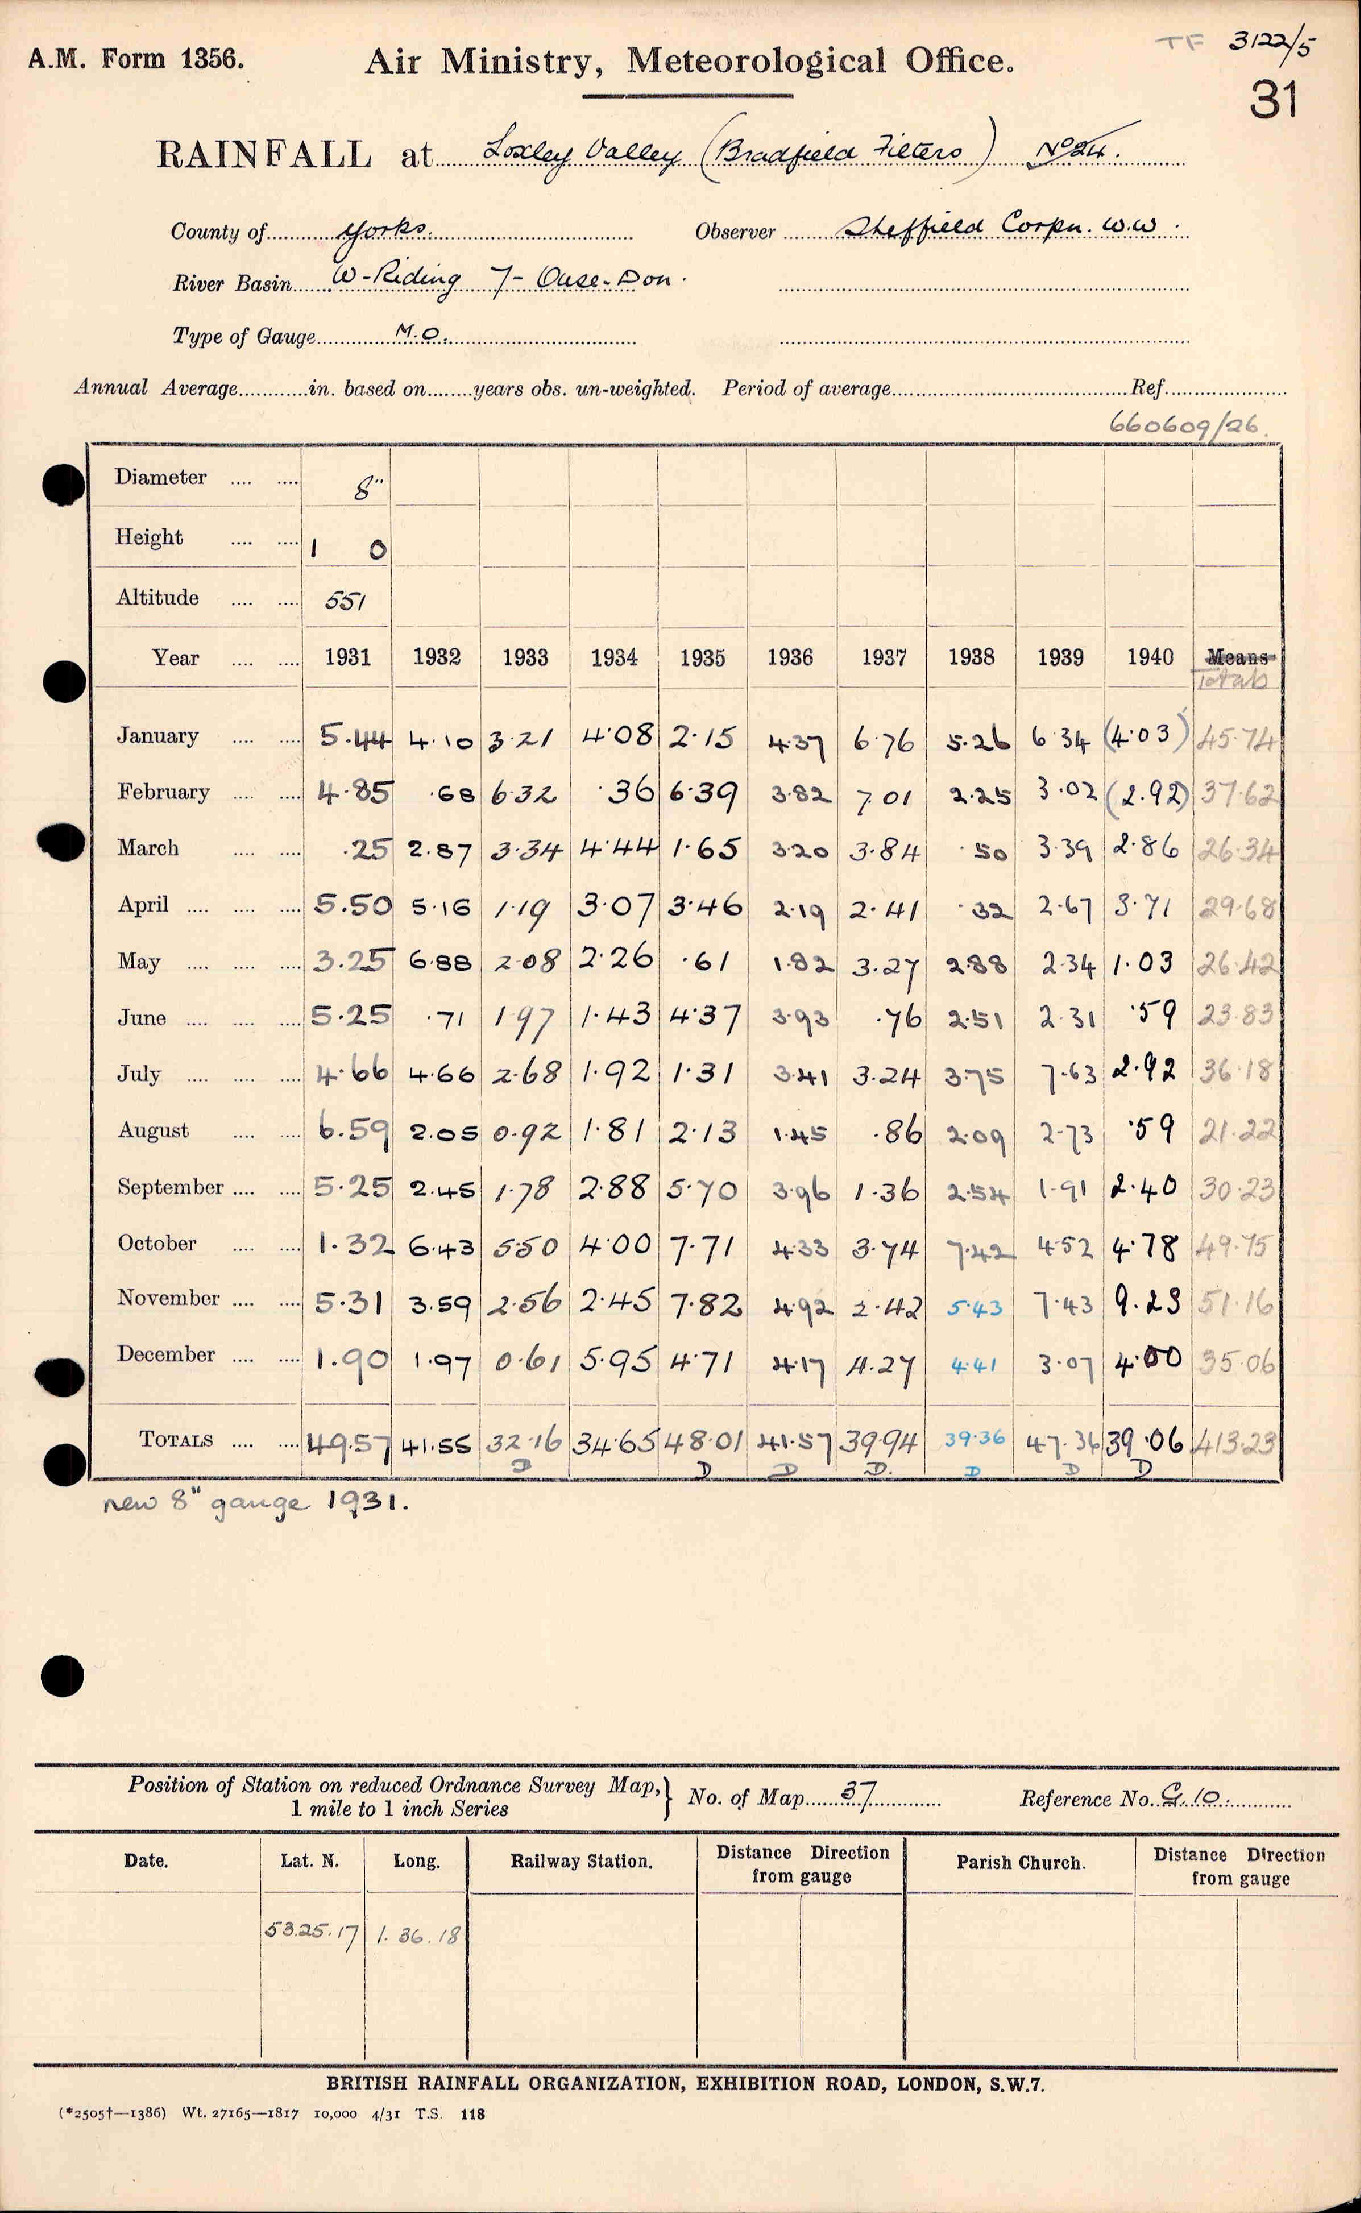 TF 3122/5
A.M. Form 1356. Air Ministry, Meteorological Office.
31
RAINFALL at Loxley Valley (Bradfield Filters) No 24.
County of Yorks. Observer Sheffield Corpn. W.W.
River Basin W-Riding 7- Ouse-Don.
Type of Gauge M.O.
Annual Average in. based on years obs. un-weighted. Period of average Ref.
660609/26.
Diameter 8"
Height 1 0
Altitude 551
Year 1931 1932 1933 1934 1935 1936 1937 1938 1939 1940 Means
Totals
January 5.44 4.10 3.21 4.08 2.15 4.37 6.76 5.26 6.34 (4.03) 45.74
February 4.85 .68 6.32 .36 6.39 3.82 7.01 2.25 3.02 (2.92) 37.62
March .25 2.87 3.34 4.44 1.65 3.20 3.84 .50 3.39 2.86 26.34
April 5.50 5.16 1.19 3.07 3.46 2.19 2.41 .32 2.67 3.71 29.68
May 3.25 6.88 2.08 2.26 .61 1.82 3.27 2.88 2.34 1.03 26.42
June 5.25 .71 1.97 1.43 4.37 3.93 .76 2.51 2.31 .59 23.83
July 4.66 4.66 2.68 1.92 1.31 3.41 3.24 3.75 7.63 2.92 36.18
August 6.59 2.05 0.92 1.81 2.13 1.45 .86 2.09 2.73 .59 21.22
September 5.25 2.45 1.78 2.88 5.70 3.96 1.36 2.54 1.91 2.40 30.23
October 1.32 6.43 5.50 4.00 7.71 4.33 3.74 7.42 4.52 4.78 49.75
November 5.31 3.59 2.56 2.45 7.82 4.92 2.42 5.43 7.43 9.23 51.16
December 1.90 1.97 0.61 5.95 4.71 4.17 4.27 4.41 3.07 4.00 35.06
TOTALS 49.57 41.55 32.16 34.65 48.01 41.57 39.94 39.36 47.36 39.06 413.23
D D D D. D D D
new 8" gauge 1931.
Position of Station on reduced Ordnance Survey Map, } No. of Map 37 Reference No. G.10.
1 mile to 1 inch Series
Date. Lat. N. Long. Railway Station. Distance Direction from gauge Parish Church. Distance Direction from gauge
53.25.17 1.36.18
BRITISH RAINFALL ORGANIZATION, EXHIBITION ROAD, LONDON, S.W.7.
(*2505†—1386) Wt. 27165—1817 10,000 4/31 T.S. 118